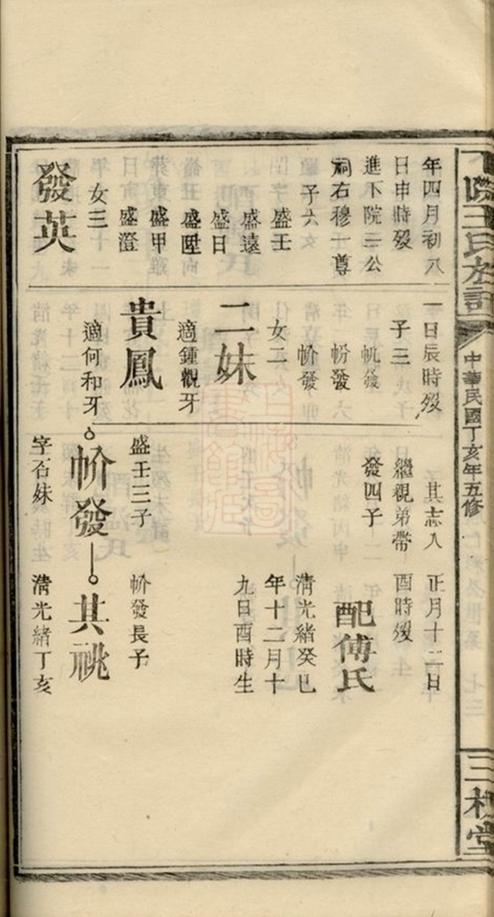 王氏族譜
中華民國丁亥年五修
三
堂
年四月初八
日申時殁
進下院三公
祠右穆一尊
子六
盛壬
盛遠
盛日
盛陞
盛甲
盛澄
女三
發英
一日辰時殁
子三
帆發
帉發
㠹發
女二
二妹
適鍾觀牙
貴鳳
適何和牙
其志入
繼親弟帶
發四子
盛壬三子
㠹發
字石妹
正月十二日
酉時殁
配傅氏
清光緒癸巳
年十二月十
九日酉時生
㠹發長子
其祧
清光緒丁亥